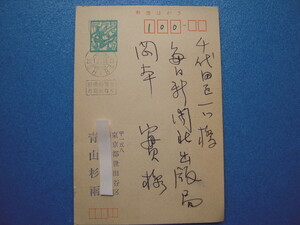 郵便はがき
100-
千代田区一ツ橋
毎日新聞社出版局
岡本 實様
〒一五八
東京都世田谷区
青山杉雨